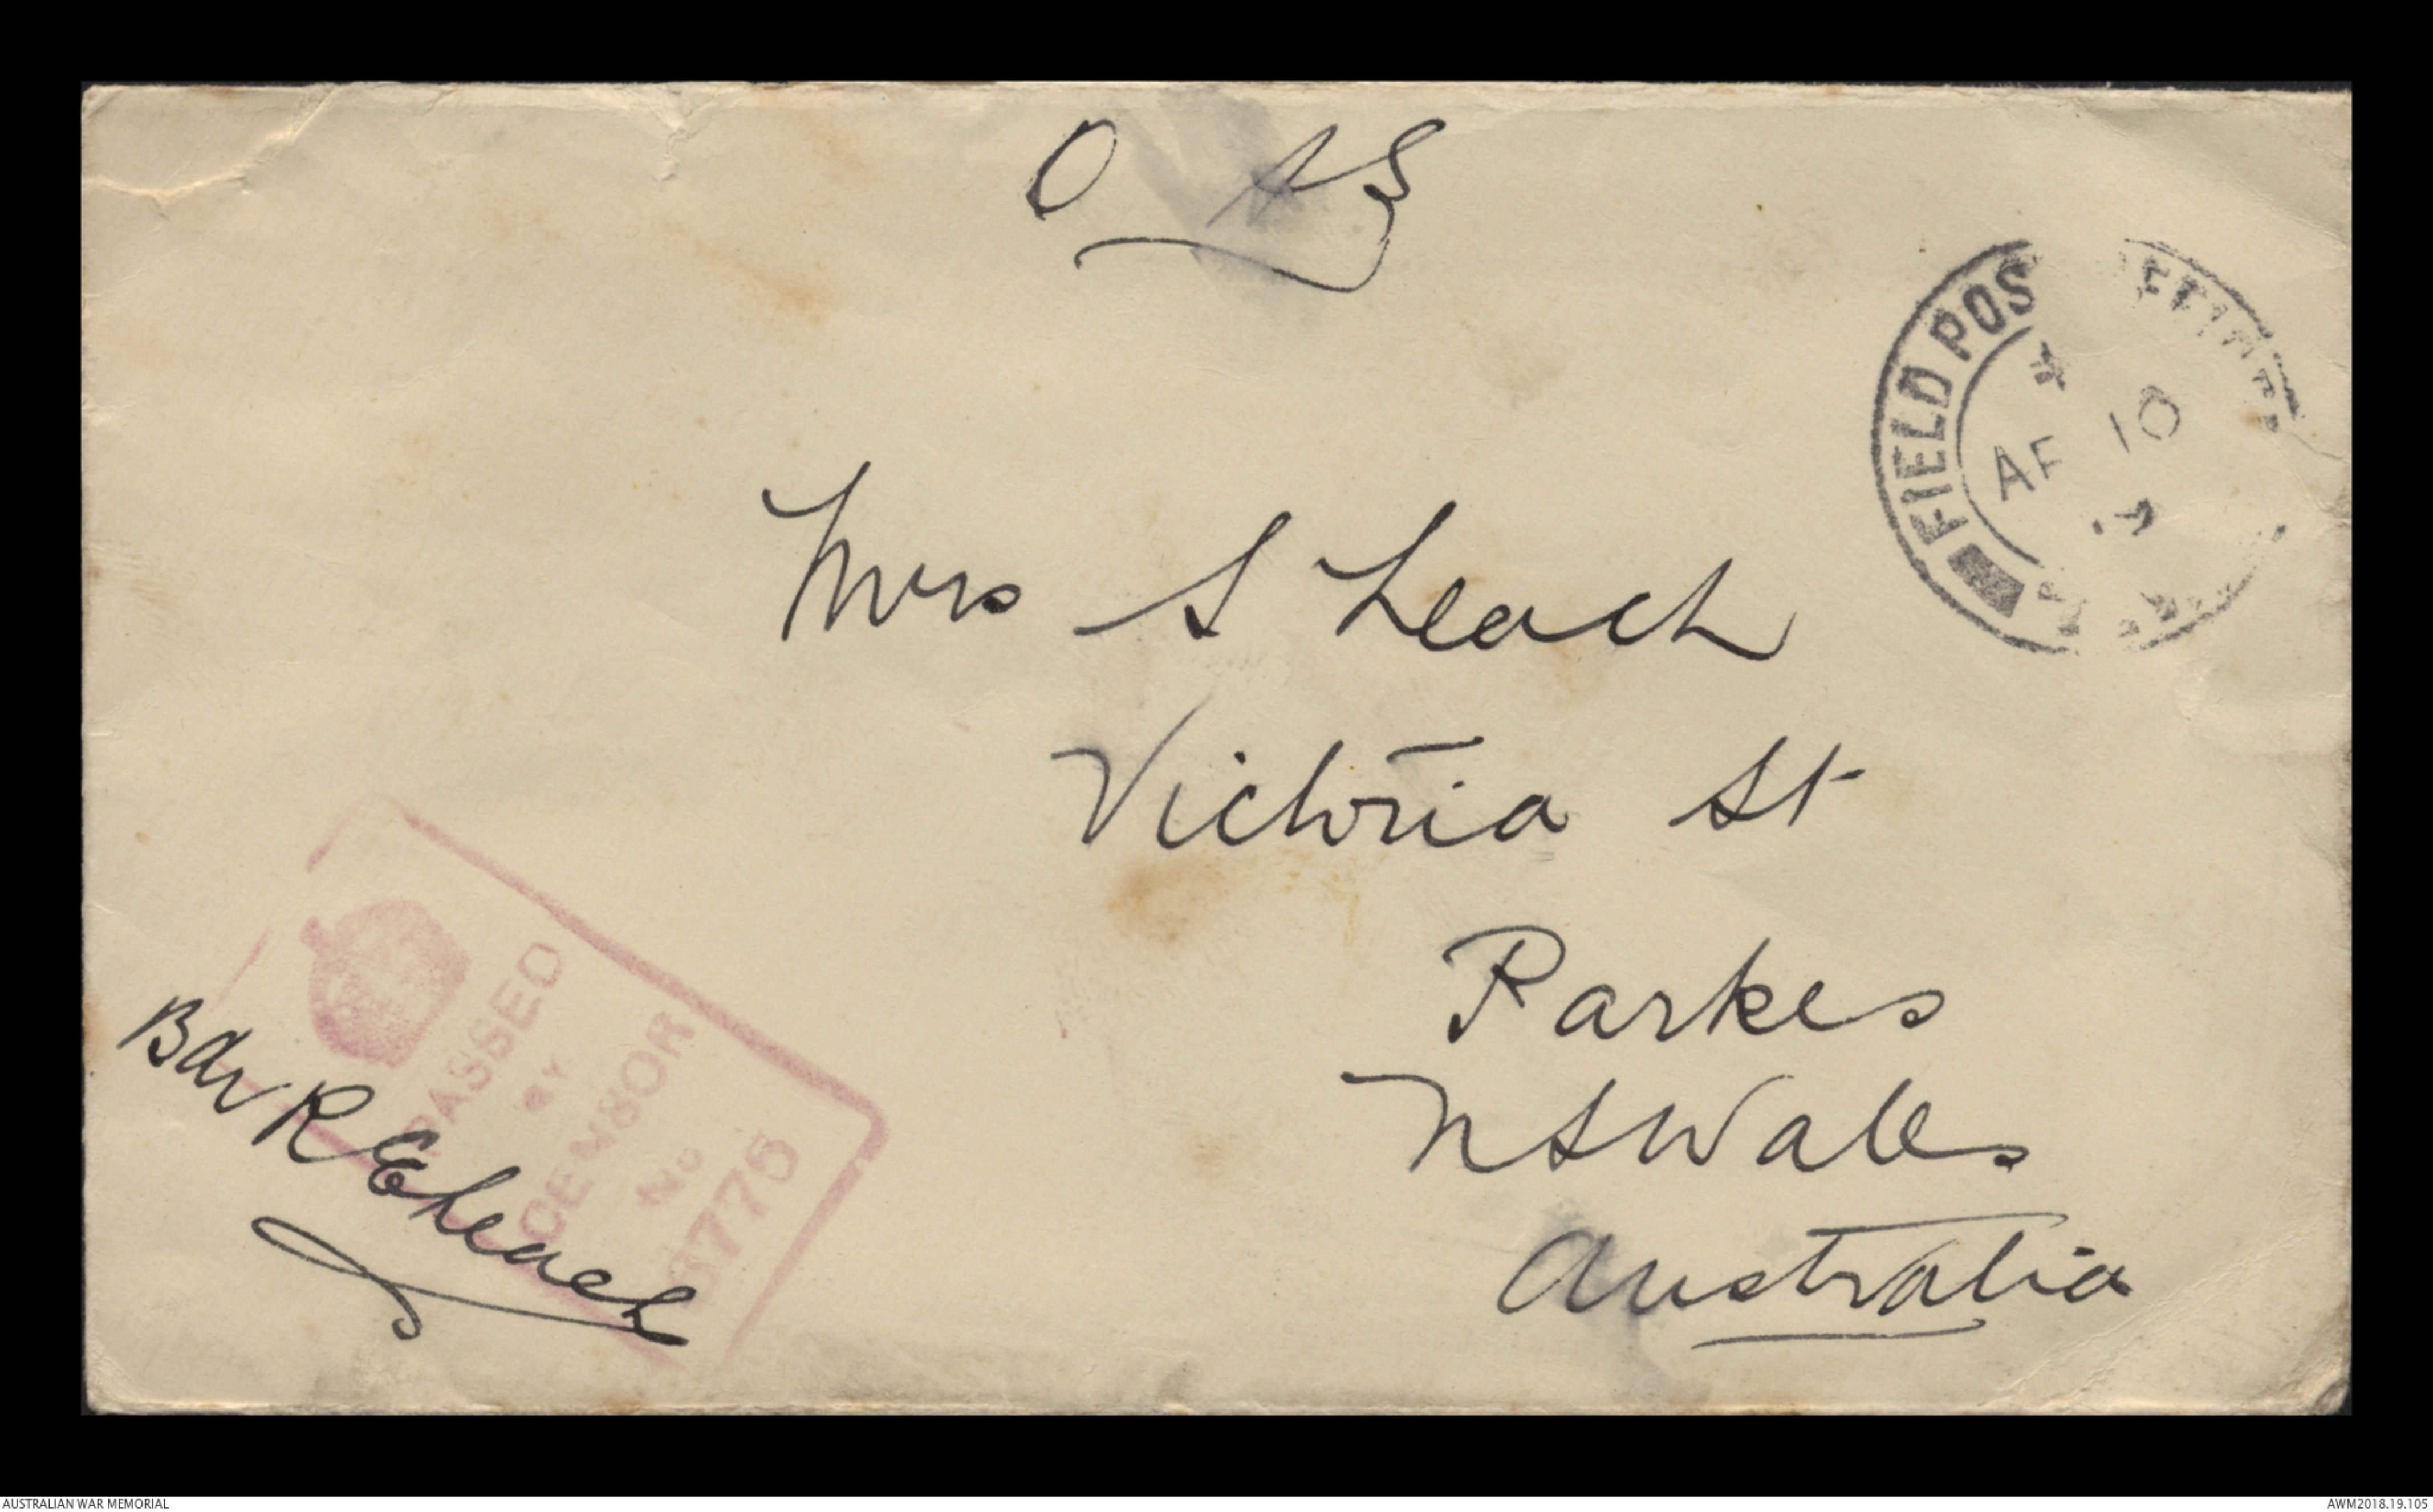 O AS
FIELD POS
10
Mrs S Leach
Victoria St
Parkes
N S Wales
Australia
PASSED
BY
CENSOR
No
3775
Bdr R E Leach
AUSTRALIAN WAR MEMORIAL
AWM2018.19.105